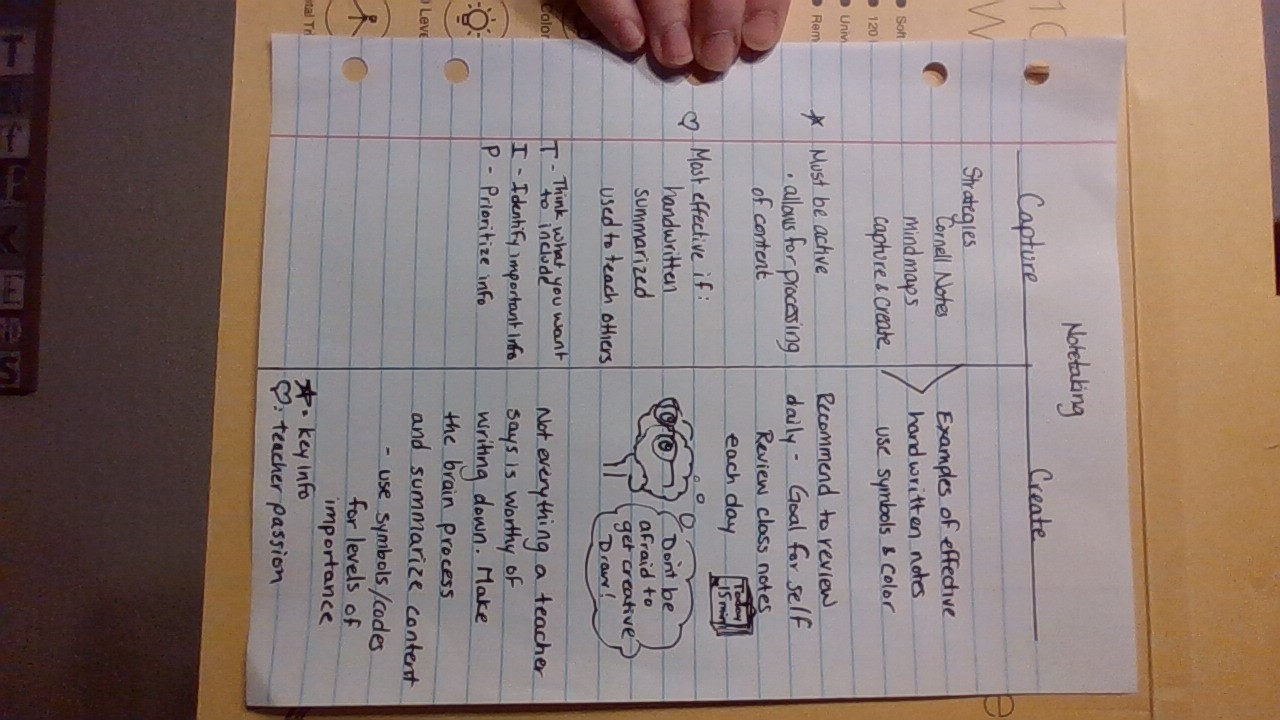 Notetaking
Capture
Strategies
Cornell Notes
mindmaps
capture & create
☆ Must be active
. allows for processing
of content
♡ Most effective if:
handwritten
summarized
used to teach others
T - Think what you want
to include
I - Identify important info
P - Prioritize info
Create
Examples of effective
handwritten notes
use symbols & color
Recommend to review
daily - Goal for self
Review class notes
each day
Today
15 min
Don't be
afraid to
get creative
Draw!
Not everything a teacher
says is worthy of
writing down. Make
the brain process
and summarize content
- use symbols/codes
for levels of
importance
☆ = key info
♡: teacher passion
Soft
120
Univ
Rem
color
Leve
ntal Tr